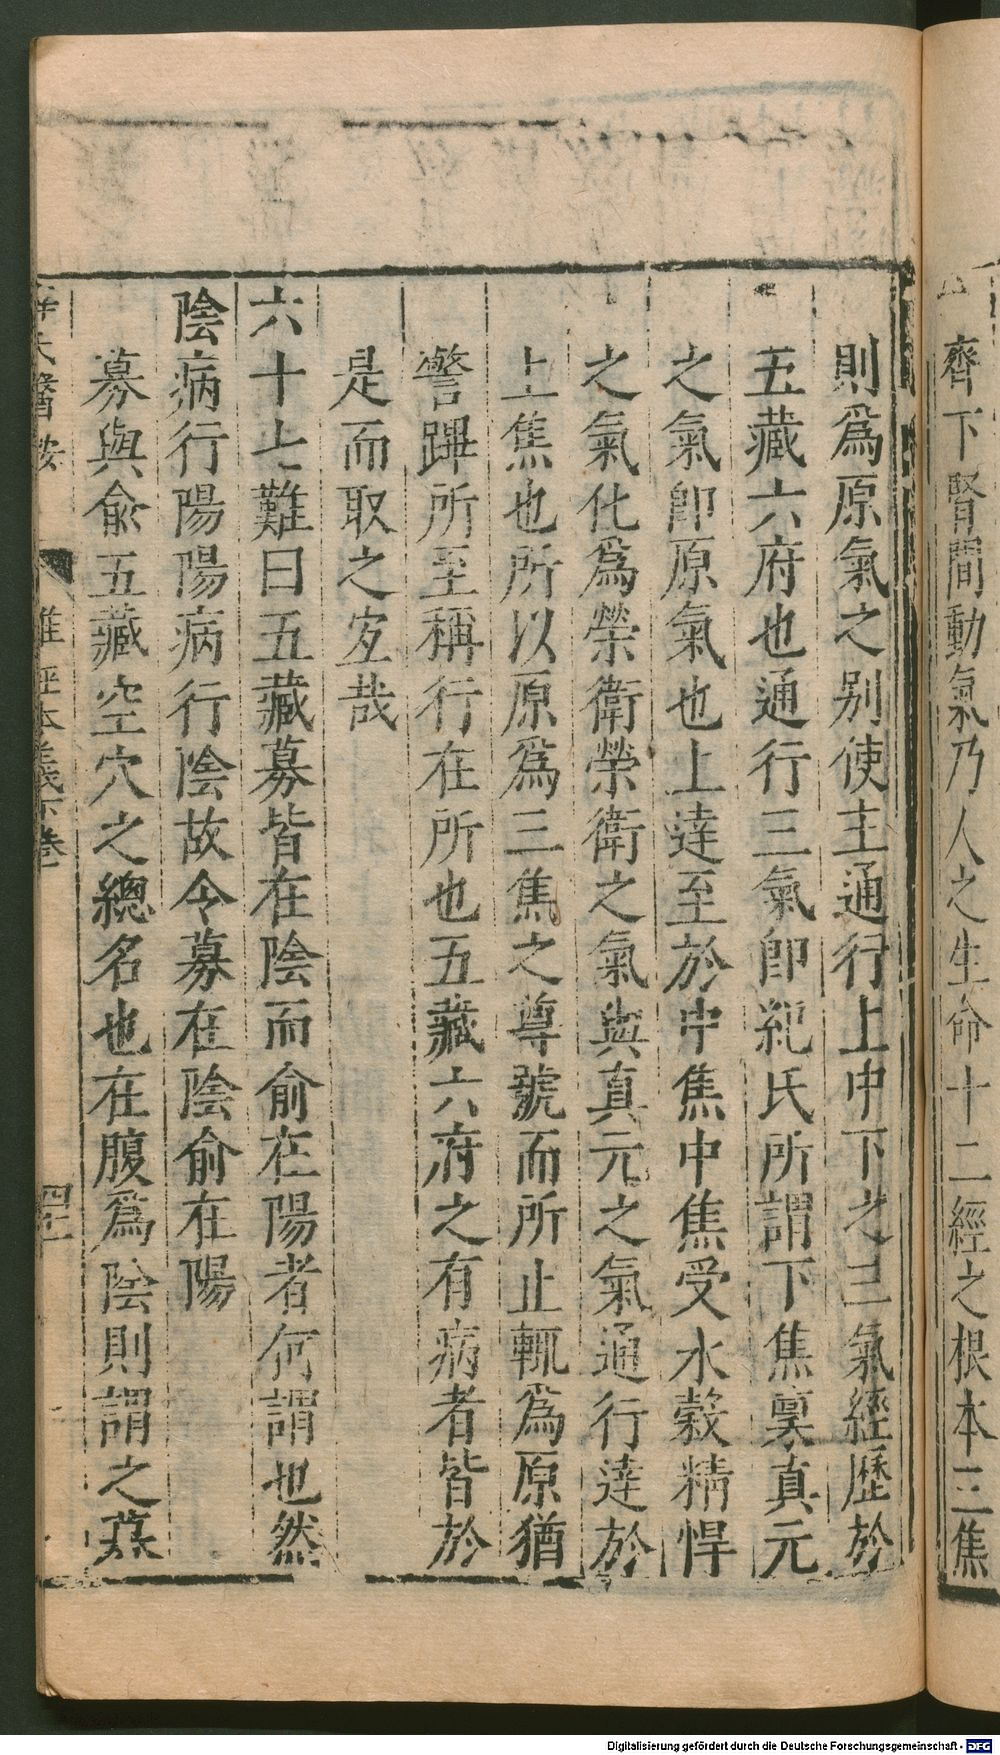 齊下腎間動氣乃人之生命十二經之根本三焦
則爲原氣之别使主通行上中下之三氣經歷於
五藏六府也通行三氣卽紀氏所謂下焦稟真元
之氣卽原氣也上達至於中焦中焦受水榖精悍
之氣化爲榮衛榮衛之氣與真元之氣通行達於
上焦也所以原爲三焦之尊號而所止輒爲原猶
警蹕所至稱行在所也五藏六府之有病者皆於
是而取之宐哉
六十七難曰五藏募皆在陰而俞在陽者何謂也然
陰病行陽陽病行陰故令募在陰俞在陽
募與俞五藏空穴之總名也在腹爲陰則謂之募
醫按
難經本義下卷
Digitalisierung gefördert durch die Deutsche Forschungsgemeinschaft - DFG